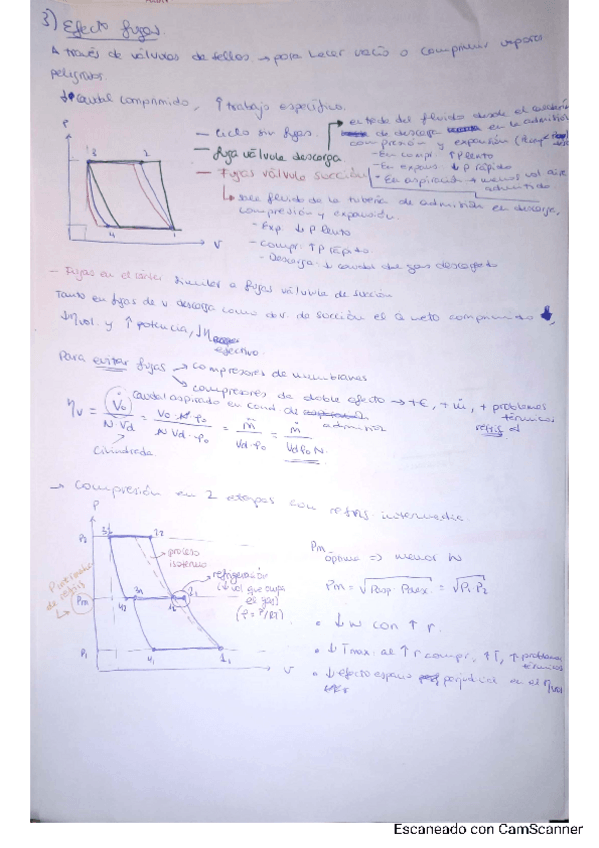 3) Efecto fugas.
A través de válvulas de sellos → para hacer vacío o comprimir vapores
peligrosos.
↓ caudal comprimido, ↑ trabajo específico.
P
3 2
4 1
V
— Ciclo sin fugas.
— fuga válvula descarga
— Fugas válvula succión
entrada del fluido desde el
de descarga en la admisión
compresión y expansión
- En compr. ↑P lento
- En expans ↓P rápido
- En aspiración → menos vol aire
admitido.
sale fluido de la tubería de admisión en descarga,
compresión y expansión.
- Exp. ↓P lento
- compr. ↑P rápido.
- Descarga ↓ caudal de gas descargado
- Fugas en el cárter similar a fugas válvula de succión
Tanto en fugas de v descarga como de succión el Q neto comprimido ↓,
↓ηvol. y ↑ potencia, ↓η
efectivo.
Para evitar fugas → compresores de membranas
→ compresores de doble efecto → +€, +ṁ, + problemas
térmicos
caudal aspirado en cond de
admisión
ηv = V̇o / N·Vd = Vo·N·ρo / N Vd·ρo = ṁ / Vd·ρo = ṁ / Vdρo N
Cilindrada
→ Compresión en 2 etapas con refrig. intermedia
P
P2
Pm
P1
V
proceso
isotermo
refrigeración
(↓ vol que ocupa
el gas)
(ρ = P/RT)
P intermedia
de refrig
Pm óptima ⇒ menor W
Pm = √Pasp. Pdesc. = √P1 P2
• ↓ W con ↑ r.
• ↓ Tmax. al ↑ r compr, ↑T, ↑ problemas
térmicos
• ↓ efecto espacio perjudicial en el ηvol
Escaneado con CamScanner